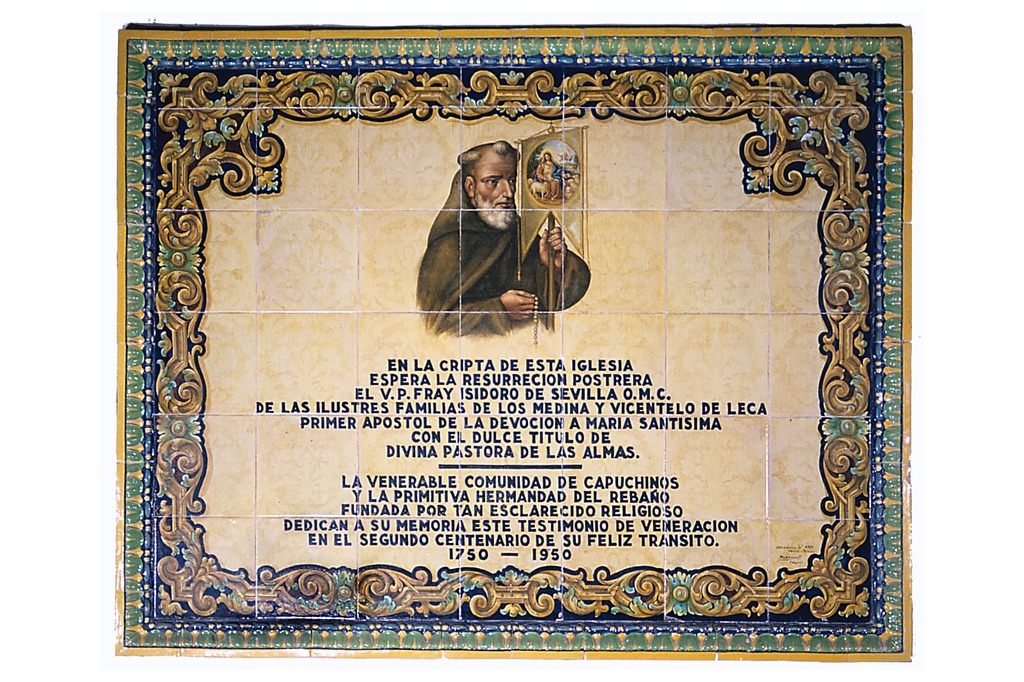 EN LA CRIPTA DE ESTA IGLESIA
ESPERA LA RESURRECION POSTRERA
EL V.P. FRAY ISIDORO DE SEVILLA O.M.C.
DE LAS ILUSTRES FAMILIAS DE LOS MEDINA Y VICENTELO DE LECA
PRIMER APOSTOL DE LA DEVOCION A MARIA SANTISIMA
CON EL DULCE TITULO DE
DIVINA PASTORA DE LAS ALMAS.
LA VENERABLE COMUNIDAD DE CAPUCHINOS
Y LA PRIMITIVA HERMANDAD DEL REBAÑO
FUNDADA POR TAN ESCLARECIDO RELIGIOSO
DEDICAN A SU MEMORIA ESTE TESTIMONIO DE VENERACION
EN EL SEGUNDO CENTENARIO DE SU FELIZ TRANSITO.
1750 — 1950